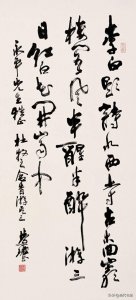 李白題詩水西寺古木回巖
樓閣風半醒半醉游三
日紅白花開山雨中
先生 杜牧之念昔游之三